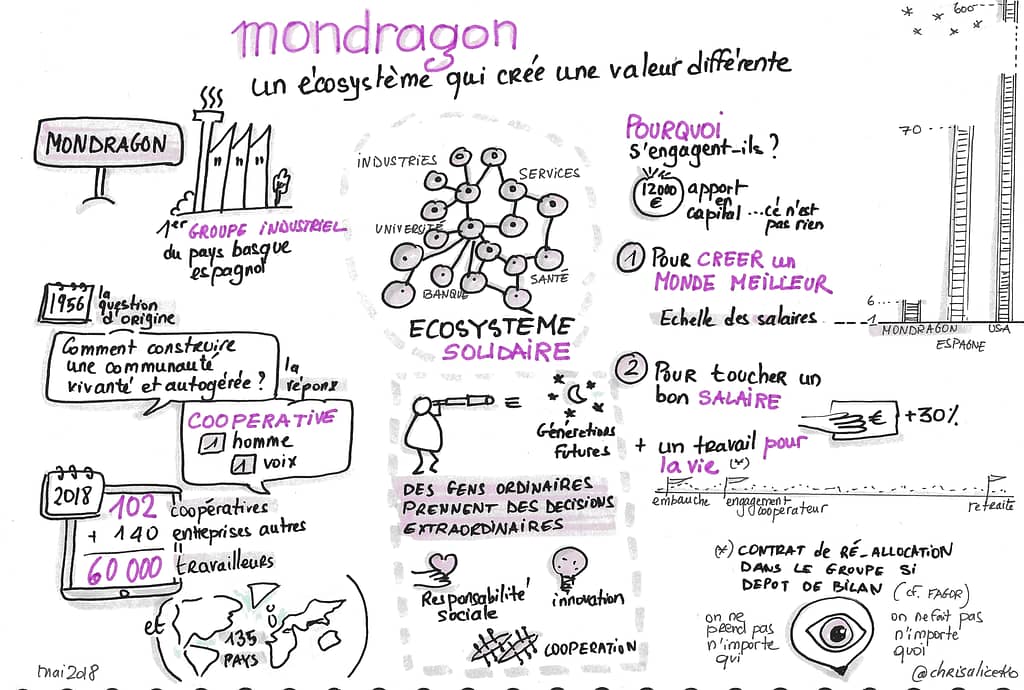 mondragon
un écosystème qui crée une valeur différente
MONDRAGON
1er GROUPE INDUSTRIEL
du pays basque
espagnol
1956
la
question
d'origine
Comment construire
une communauté
vivante et autogérée ?
la
réponse
COOPERATIVE
1 homme
1 voix
2018
102 coopératives
+ 140 entreprises autres
60 000 travailleurs
et
135
PAYS
mai 2018
INDUSTRIES
SERVICES
UNIVERSITÉ
SANTÉ
BANQUE
ECOSYSTÈME
SOLIDAIRE
=
Générations
futures
DES GENS ORDINAIRES
PRENNENT DES DECISIONS
EXTRAORDINAIRES
Responsabilité
sociale
innovation
COOPERATION
POURQUOI
s'engagent-ils ?
12000
€
apport
en
capital ... cé n'est
pas rien
1 POUR CREER un
MONDE MEILLEUR
Echelle des salaires
600
70
6
1
MONDRAGON
ESPAGNE
USA
2 POUR toucher un
bon SALAIRE
€ +30%
+ un travail pour
la vie (*)
embauche
engagement
coopérateur
retraite
(*) CONTRAT de RÉ-ALLOCATION
DANS LE GROUPE SI
DEPOT DE BILAN (cf. FAGOR)
on ne
prend pas
n'importe
qui
on ne fait pas
n'importe
quoi
@chrisalicetto